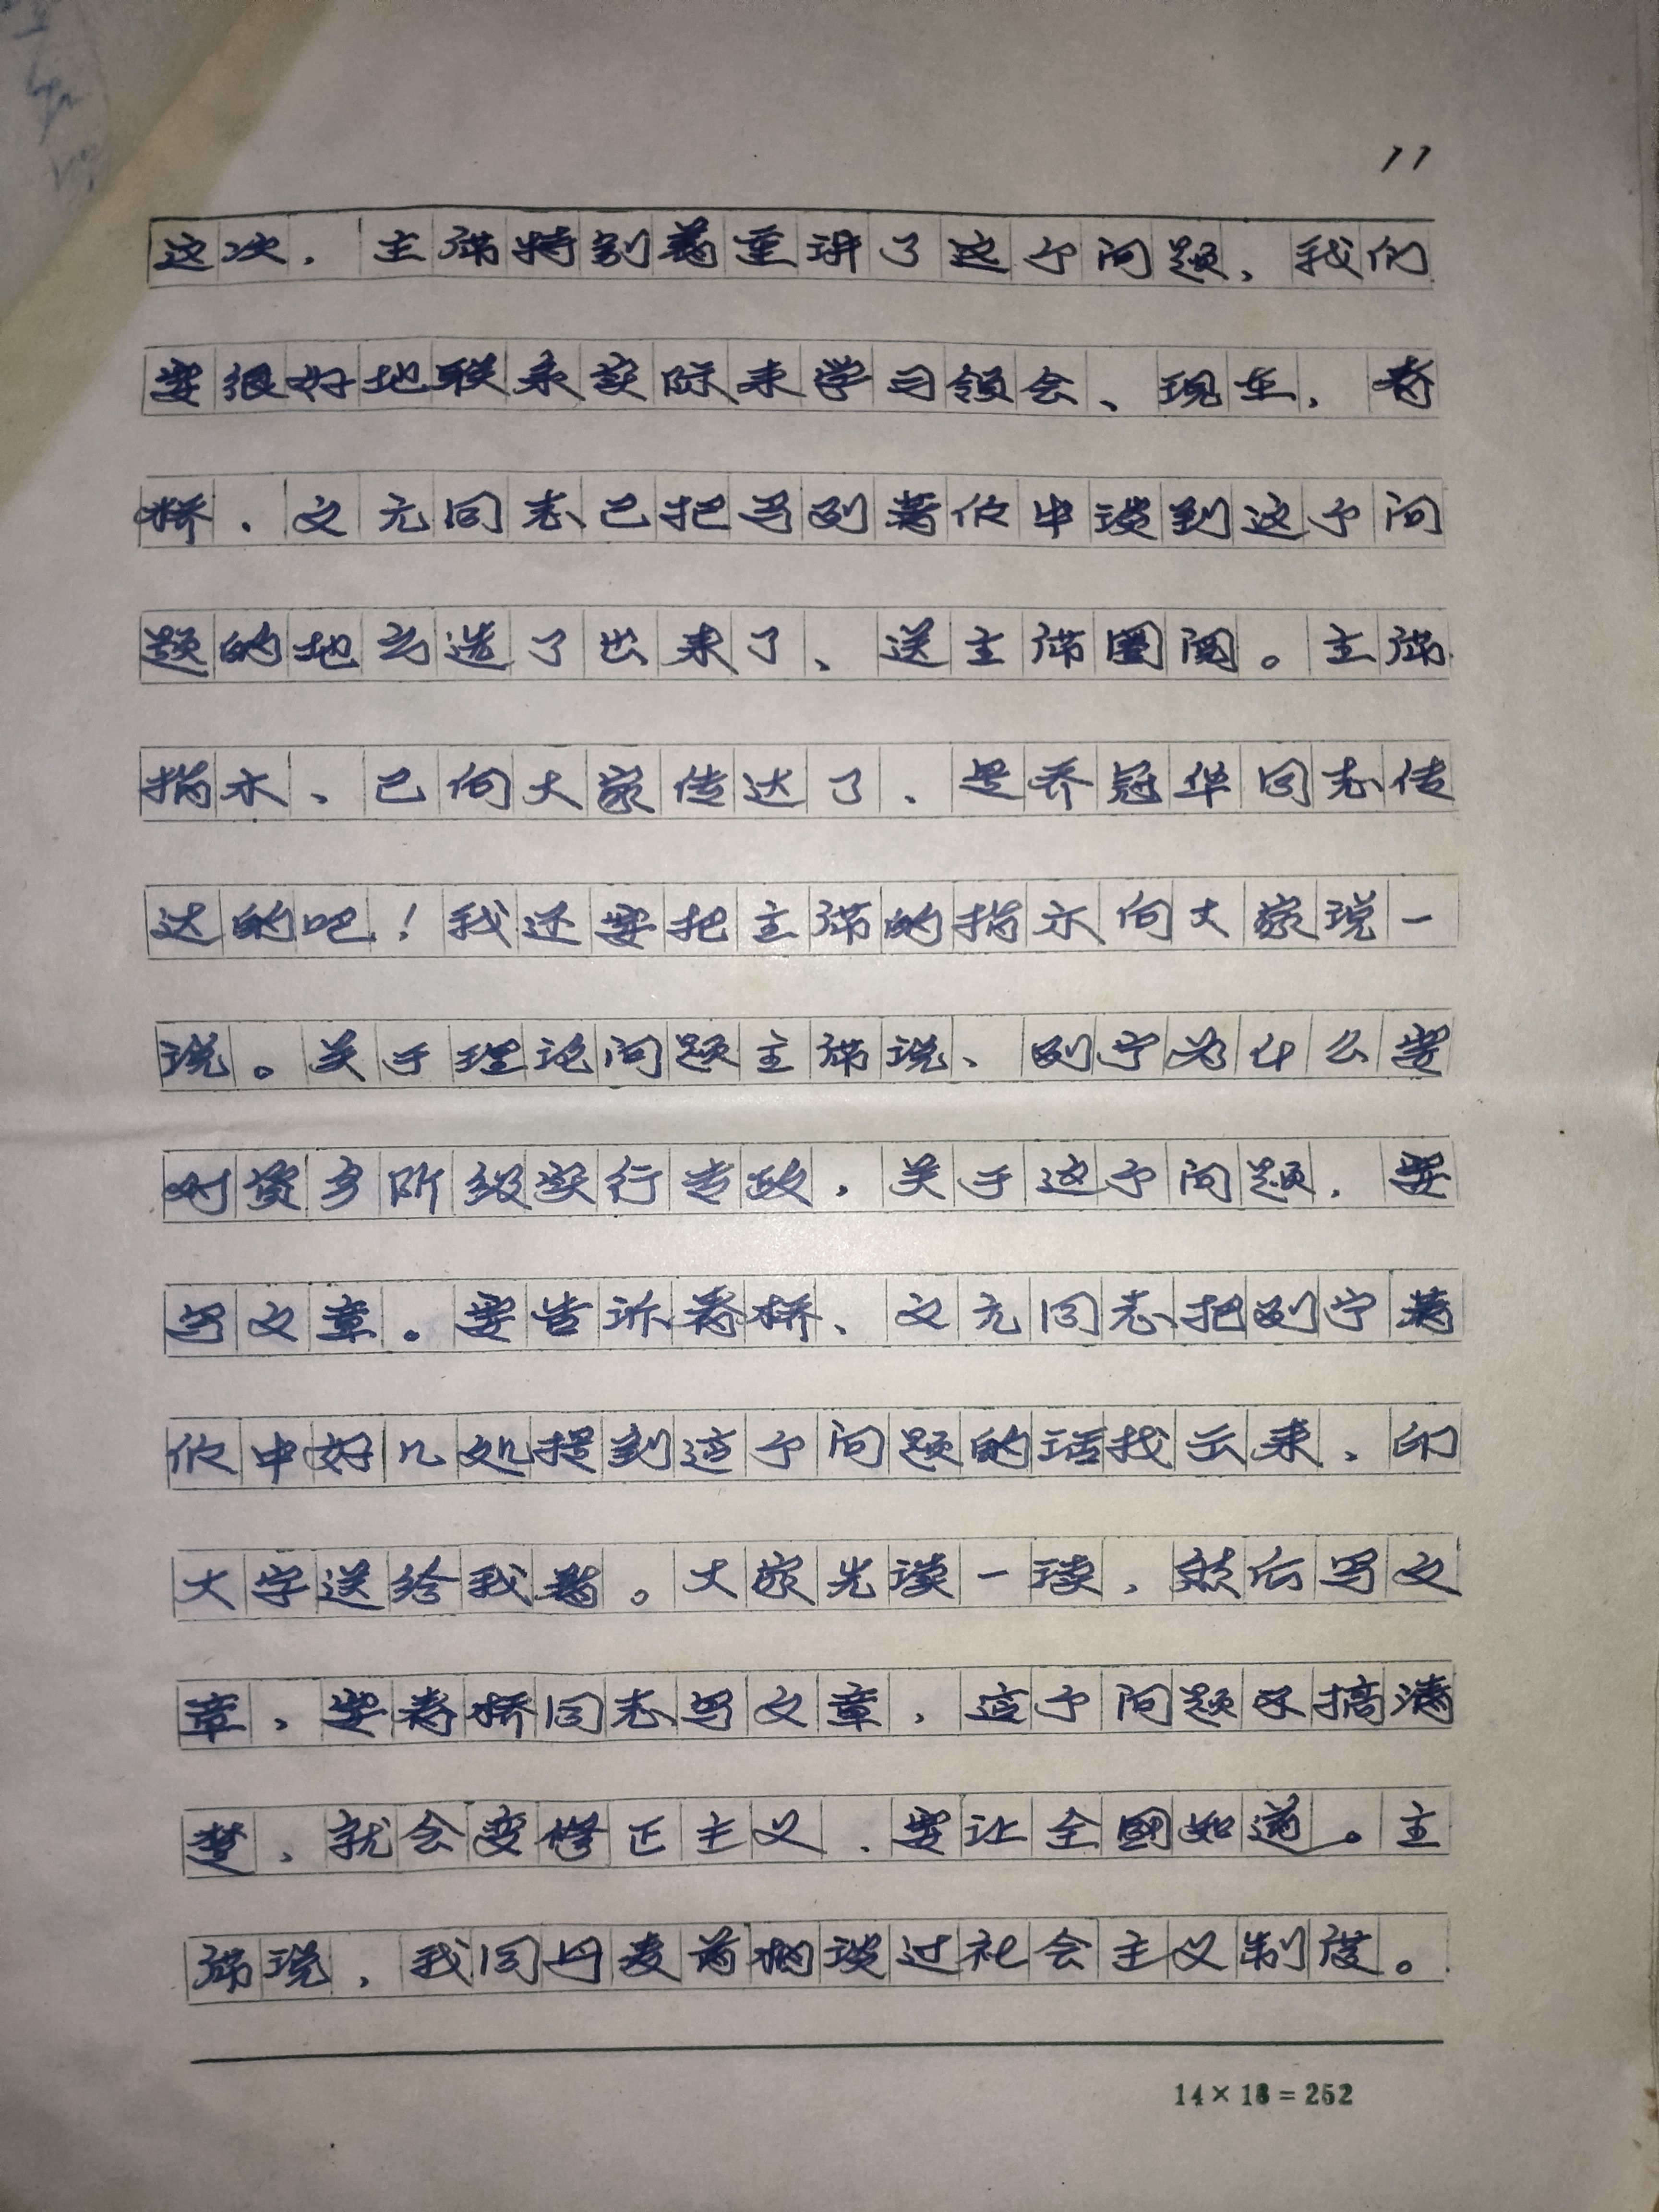 11
这次，主席特别着重讲了这个问题、我们
要很好地联系实际来学习领会、现在，春
桥、文元同志已把马列著作中谈到这个问
题的地方选了出来了、送主席圈阅。主席
指示、已向大家传达了、是乔冠华同志传
达的吧！我还要把主席的指示向大家说一
说。关于理论问题主席说、列宁为什么要
对资产阶级实行专政，关于这个问题，要
写文章。要告诉春桥、文元同志把列宁著
作中好几处提到这个问题的话找出来，印
大字送给我看。大家先读一读，然后写文
章，要春桥同志写文章，这个问题不搞清
楚，就会变修正主义，要让全國知道。主
席说，我同丹麦首相谈过社会主义制度。
14×18=252